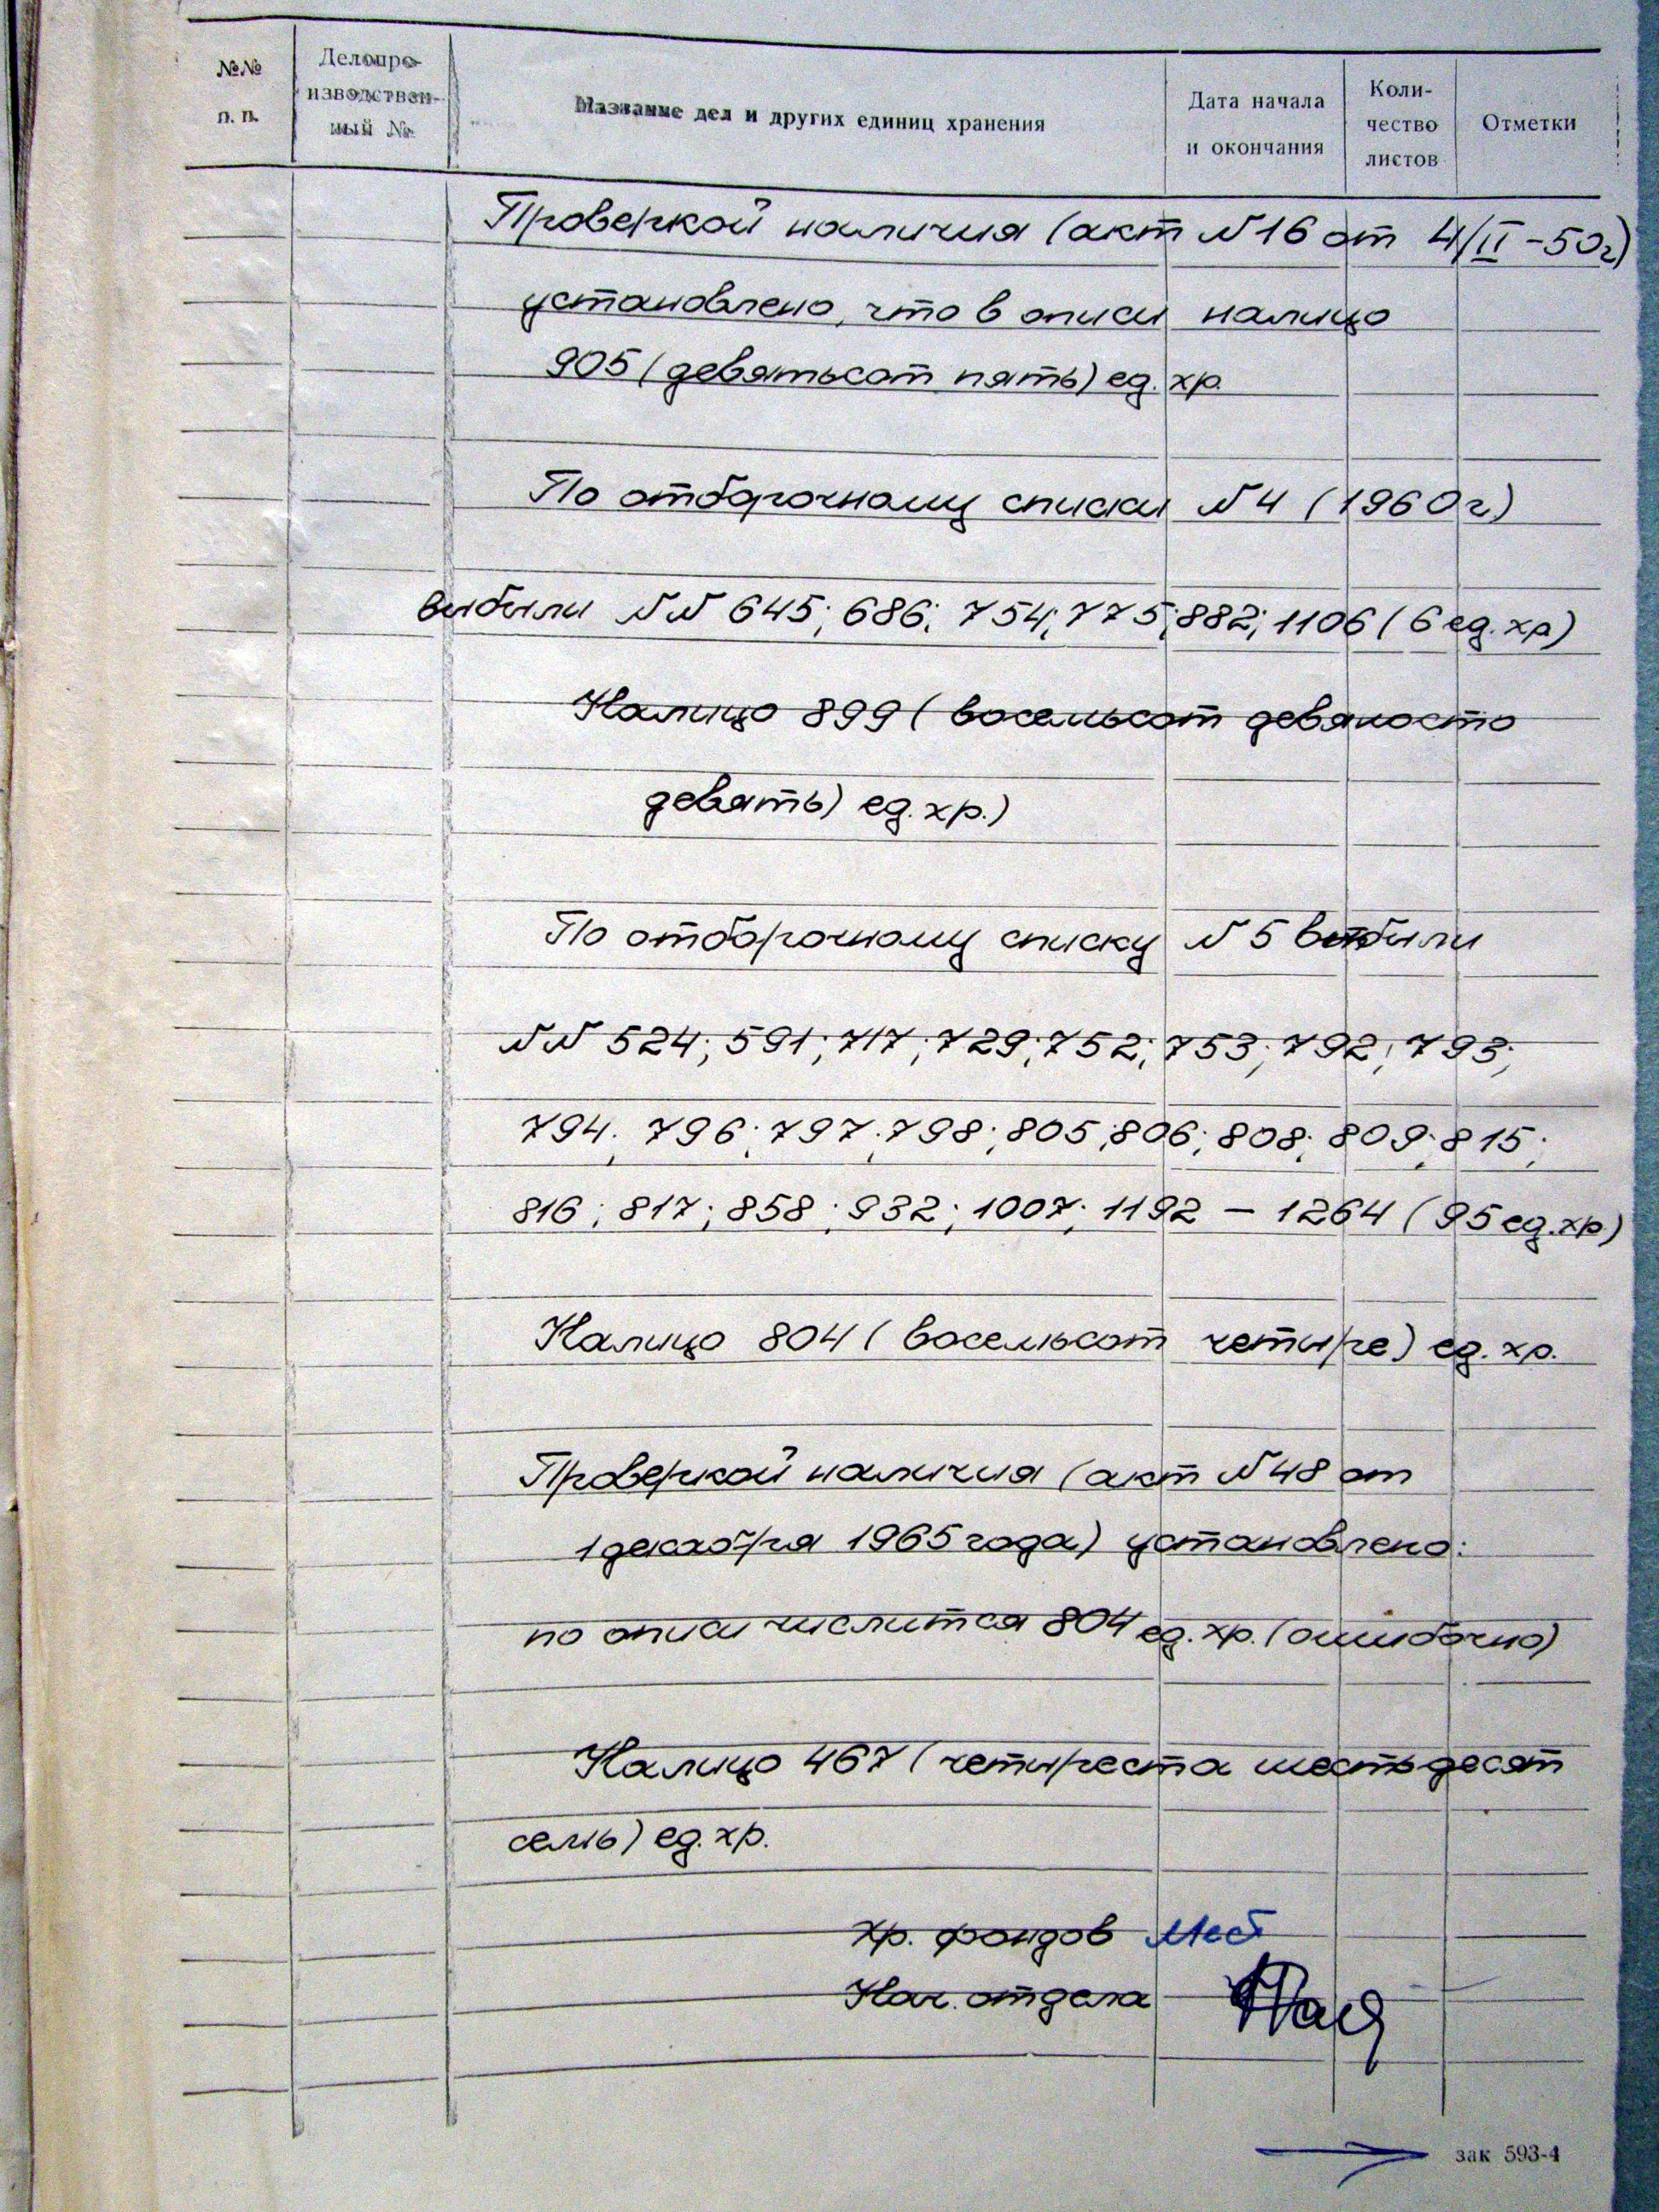 №№ п. п.
Делопроизводственный №
Название дел и других единиц хранения
Дата начала и окончания
Количество листов
Отметки
Проверкой наличия (акт N 16 от 4/II-50г)
установлено, что в описи налицо
905 (девятьсот пять) ед. хр.
По отборочному списку N 4 (1960г)
выбыли NN 645; 686; 754; 775; 882; 1106 (6 ед. хр)
Налицо 899 (восемьсот девяносто
девять) ед. хр.)
По отборочному списку N 5 выбыли
NN 524; 591; 717; 729; 752; 753; 792; 793;
794; 796; 797; 798; 805; 806; 808; 809; 815;
816; 817; 858; 932; 1007; 1192 - 1264 (95 ед. хр)
Налицо 804 (восемьсот четыре) ед. хр.
Проверкой наличия (акт N 48 от
1 декабря 1965 года) установлено:
по описи числится 804 ед. хр. (ошибочно)
Налицо 467 (четыреста шестьдесят
семь) ед. хр.
Хр. фондов
Нач. отдела
зак 593-4